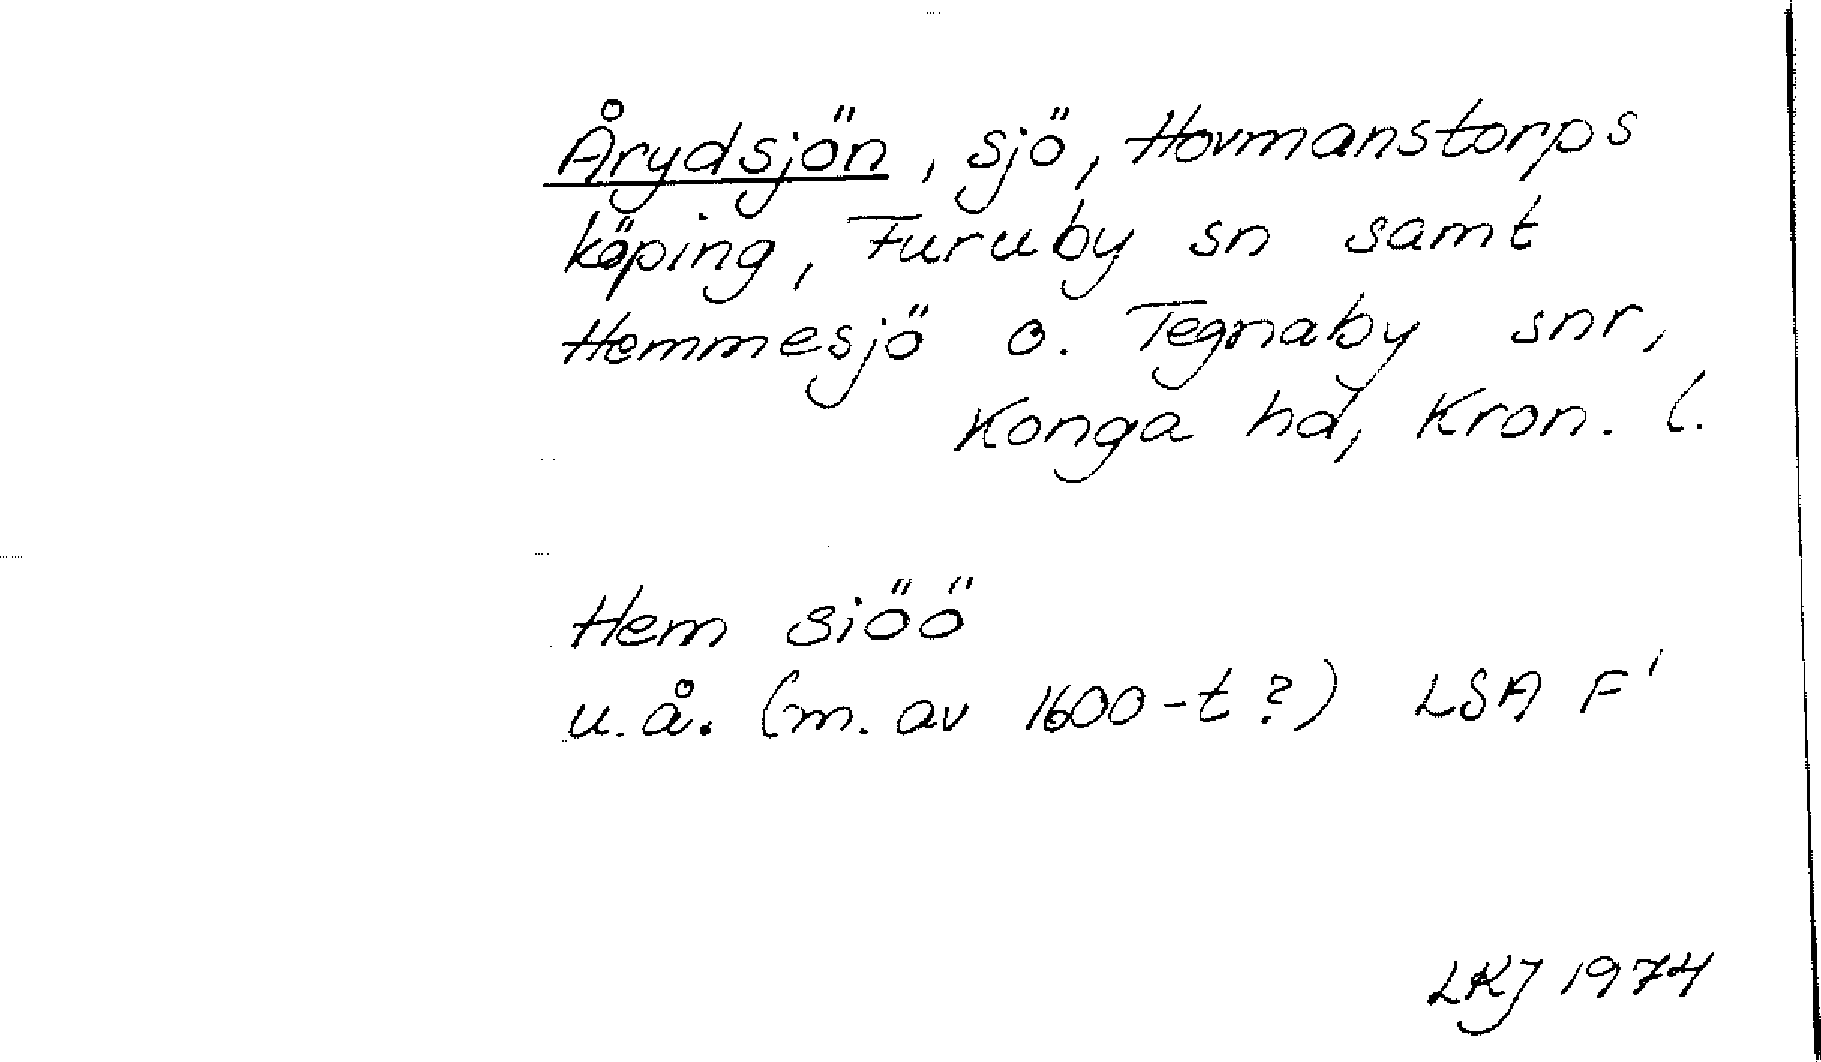 Årydsjön, sjö, Hovmanstorps
köping, Furuby sn samt
Hemmesjö o. Tegnaby snr,
Konga hd, Kron. l.
Hem siöö
u.å. (m. av 1600-t?) LSA F'
LKJ 1974